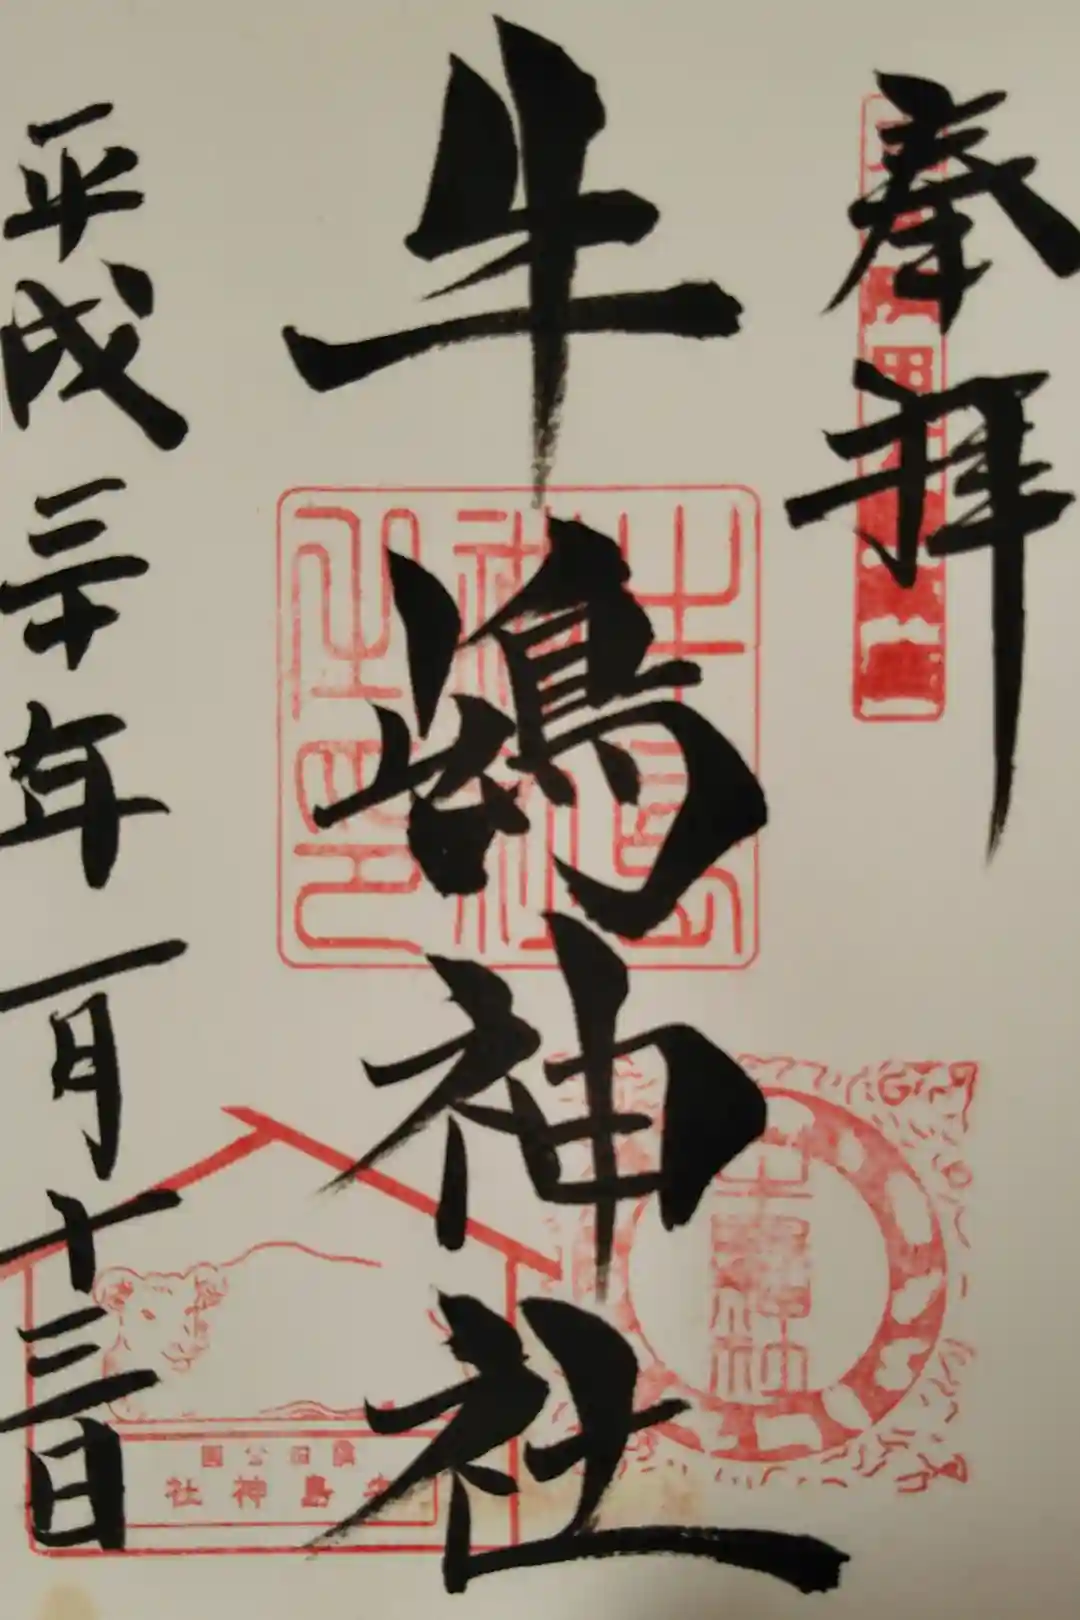 奉拝
牛嶋神社
牛島神社之印
平成三十年一月十三日
隅田公園
牛島神社